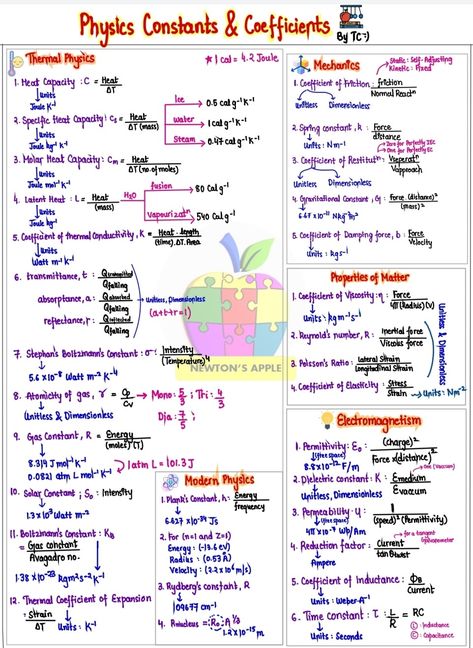 Physics Constants & Coefficients
By TC:)
Thermal Physics
* 1 cal = 4.2 Joule
1. Heat Capacity : C = Heat / ΔT
Units
Joule K⁻¹
2. Specific Heat Capacity : Cs = Heat / ΔT (mass)
Units
Joule kg⁻¹ K⁻¹
Ice → 0.5 cal g⁻¹ K⁻¹
Water → 1 cal g⁻¹ K⁻¹
Steam → 0.47 cal g⁻¹ K⁻¹
3. Molar Heat Capacity : Cm = Heat / ΔT (no. of moles)
Units
Joule mol⁻¹ K⁻¹
4. Latent Heat : L = Heat / (mass)
Units
Joule kg⁻¹
H₂O
fusion → 80 cal g⁻¹
Vapourizatⁿ → 540 cal g⁻¹
5. Coefficient of thermal Conductivity, K = Heat . length / (time). ΔT. Area
Units
Watt m⁻¹ K⁻¹
6. transmittance, t : Q transmitted / Q falling
absorptance, a : Q absorbed / Q falling
reflectance, r : Q reflected / Q falling
Unitless, Dimensionless
(a+t+r=1)
7. Stephan's Boltzmann's Constant : σ - Intensity / (Temperature)⁴
Units
5.6 x 10⁻⁸ Watt m⁻² K⁻⁴
8. Atomicity of gas, r = Cp / Cv → Mono: 5/3 ; Tri : 4/3
Dia : 7/5 ;
Unitless & Dimensionless
9. Gas Constant, R = Energy / (moles)(T)
Units
8.314 J mol⁻¹ K⁻¹
0.0821 atm L mol⁻¹ K⁻¹
1 atm L = 101.3 J
10. Solar Constant ; S₀ : Intensity
1.3 x 10³ Watt m⁻²
11. Boltzmann's Constant : KB
= Gas constant / Avagadro no.
1.38 x 10⁻²³ Kg m² s⁻² K⁻¹
12. Thermal Coefficient of Expansion
= Strain / ΔT
Units : K⁻¹
NEWTON'S APPLE
Modern Physics
1. Plank's Constant, h : Energy / frequency
6.627 x 10⁻³⁴ Js
2. For (n=1 and Z=1)
Energy : (-13.6 eV)
Radius : (0.53 Å)
Velocity : (2.2 x 10⁶ m/s)
3. Rydberg's constant, R
109677 cm⁻¹
4. Rnucleus = R₀ . A^1/3
1.2 x 10⁻¹⁵ m
Mechanics
Static : Self-Adjusting
Kinetic : Fixed
1. Coefficient of Friction : friction / Normal Reactⁿ
Unitless Dimensionless
2. Spring constant, k : Force / distance
Units : N m⁻¹
One for Perfectly IEC
3. Coefficient of Restitutⁿ : Vseperatⁿ / Vapproach
Unitless Dimensionless
4. Gravitational Constant, G : Force . (distance)² / (mass)²
6.67 x 10⁻¹¹ N kg⁻² m²
5. Coefficient of Damping force, b : Force / Velocity
Units : Kg s⁻¹
Properties of Matter
1. Coefficient of Viscosity : η : Force / 6π (Radius) (v)
Units : kg m⁻¹ s⁻¹
2. Reynold's number, R : Inertial force / Viscous force
3. Poisson's Ratio : Lateral Strain / Longitudinal Strain
Unitless & Dimensionless
4. Coefficient of Elasticity : Stress / Strain → Units : N m⁻²
Electromagnetism
1. Permittivity : ε₀ : (charge)² / Force x (distance)²
(free space)
8.8 x 10⁻¹² F/m
2. Dielectric constant : K : Emedium / Evaccum
one (Vaccum)
Unitless, Dimensionless
3. Permeability - μ : 1 / (speed)² (Permittivity)
(free space)
4π x 10⁻⁷ Wb/Am
4. Reduction factor : Current / tan θ
for a tangent
Ampere
5. Coefficient of Inductance : ΦB / Current
Units : Weber A⁻¹
6. Time constant : τ : L / R = RC
Units : Seconds
L : Inductance
C : Capacitance